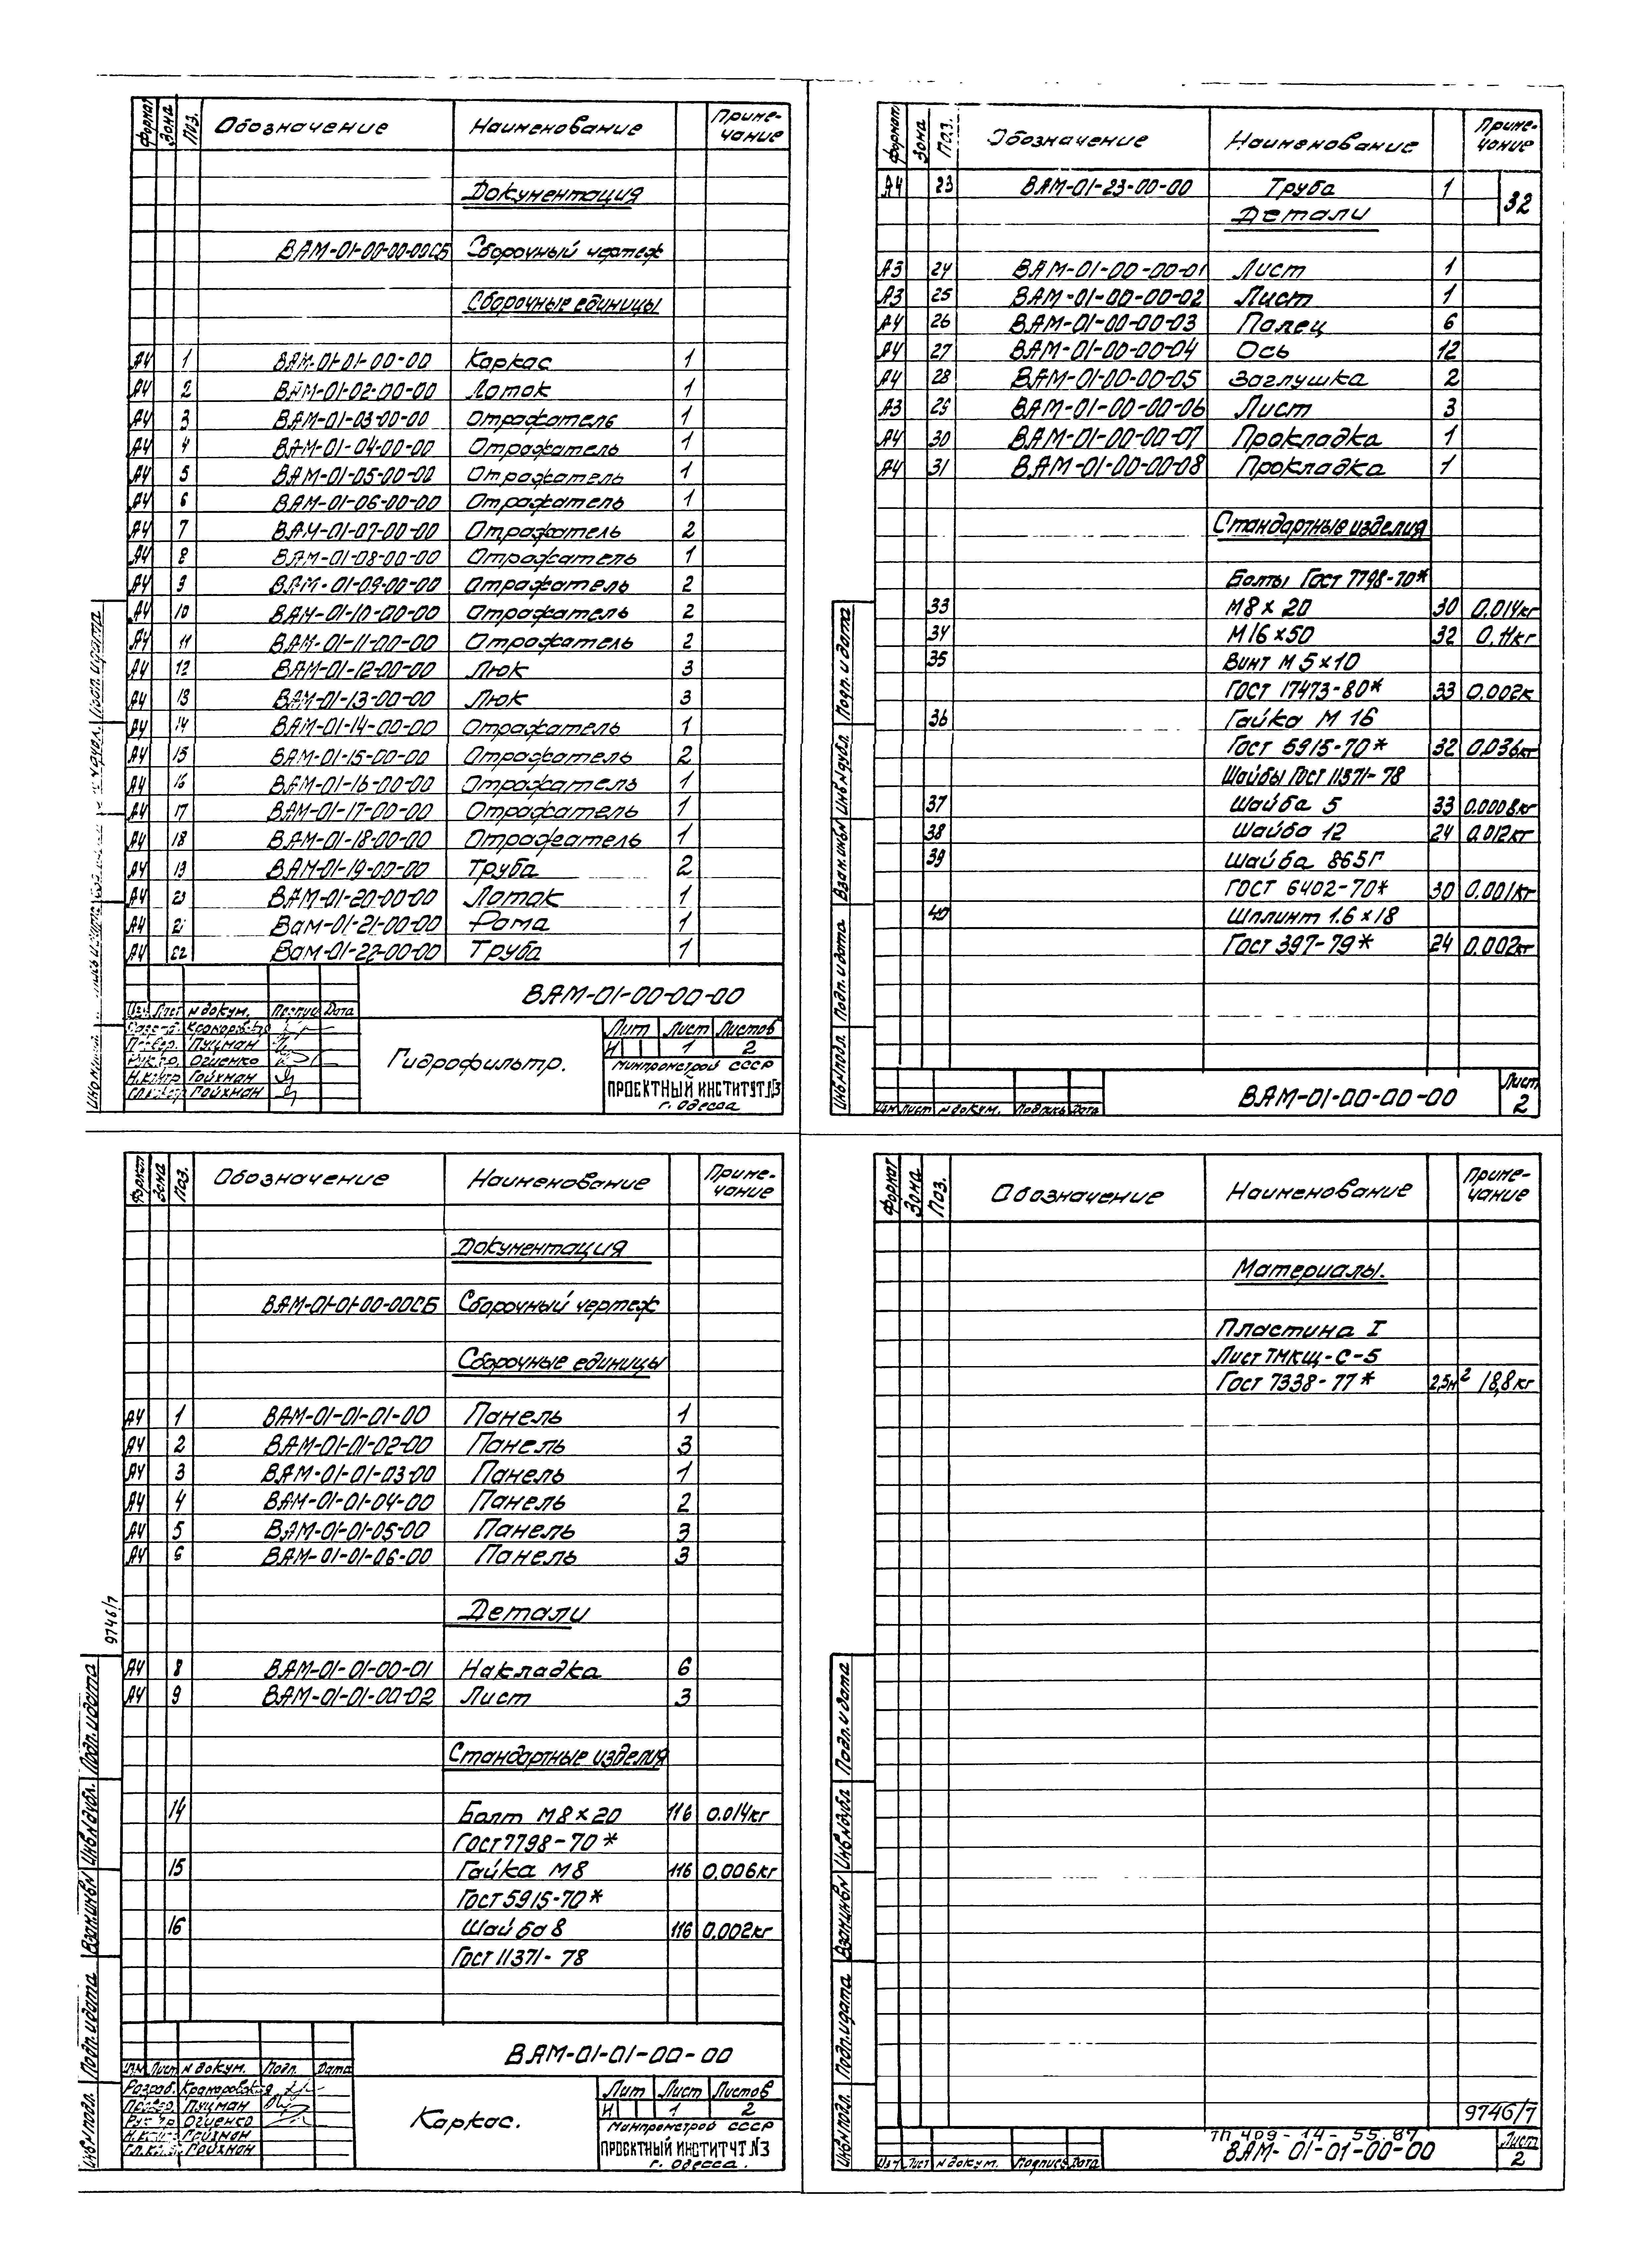 Формат Зона Поз. Обозначение Наименование Приме-
чание
Документация
ВАМ-01-00-00-00СБ Сборочный чертеж
Сборочные единицы
А4 1 ВАМ-01-01-00-00 Каркас 1
А4 2 ВАМ-01-02-00-00 Лоток 1
А4 3 ВАМ-01-03-00-00 Отражатель 1
А4 4 ВАМ-01-04-00-00 Отражатель 1
А4 5 ВАМ-01-05-00-00 Отражатель 1
А4 6 ВАМ-01-06-00-00 Отражатель 1
А4 7 ВАМ-01-07-00-00 Отражатель 2
А4 8 ВАМ-01-08-00-00 Отражатель 1
А4 9 ВАМ-01-09-00-00 Отражатель 2
А4 10 ВАМ-01-10-00-00 Отражатель 2
А4 11 ВАМ-01-11-00-00 Отражатель 2
А4 12 ВАМ-01-12-00-00 Люк 3
А4 13 ВАМ-01-13-00-00 Люк 3
А4 14 ВАМ-01-14-00-00 Отражатель 1
А4 15 ВАМ-01-15-00-00 Отражатель 2
А4 16 ВАМ-01-16-00-00 Отражатель 1
А4 17 ВАМ-01-17-00-00 Отражатель 1
А4 18 ВАМ-01-18-00-00 Отражатель 1
А4 19 ВАМ-01-19-00-00 Труба 2
А4 20 ВАМ-01-20-00-00 Лоток 1
А4 21 Вам-01-21-00-00 Рама 1
А4 22 Вам-01-22-00-00 Труба 1
ВАМ-01-00-00-00
Изм Лист N докум. Подпис Дата
Провер. Пуцман
Рук.гр. Огиенко
Н.контр Гойхман
Гойхман
Гидрофильтр.
Лит Лист Листов
И 1 2
Минпромстрой СССР
ПРОЕКТНЫЙ ИНСТИТУТ №3
г. Одесса
Формат Зона Поз. Обозначение Наименование Приме-
чание
А4 23 ВАМ-01-23-00-00 Труба 1
32
Детали
А3 24 ВАМ-01-00-00-01 Лист 1
А3 25 ВАМ-01-00-00-02 Лист 1
А4 26 ВАМ-01-00-00-03 Палец 6
А4 27 ВАМ-01-00-00-04 Ось 12
А4 28 ВАМ-01-00-00-05 Заглушка 2
А3 29 ВАМ-01-00-00-06 Лист 3
А4 30 ВАМ-01-00-00-07 Прокладка 1
А4 31 ВАМ-01-00-00-08 Прокладка 1
Стандартные изделия
Болты Гост 7798-70*
33 М8×20 30 0.014кг
34 М16×50 32 0.11кг
35 Винт М5×10
ГОСТ 17473-80* 33 0.002к
36 Гайка М 16
Гост 5915-70* 32 0.036кг
Шайбы Гост 11371-78
37 Шайба 5 33 0.0008кг
38 Шайба 12 24 0.012кг
39 Шайба 865Г
ГОСТ 6402-70* 30 0.001кг
40 Шплинт 1.6×18
Гост 397-79* 24 0.002кг
Инв.N подл. Подп. и дата Взам.инв.N Инв.N дубл. Подп. и дата
Изм Лист N докум. Подпись Дата
ВАМ-01-00-00-00
Лист
2
Формат Зона Поз. Обозначение Наименование Приме-
чание
Документация
ВАМ-01-01-00-00СБ Сборочный чертеж
Сборочные единицы
А4 1 ВАМ-01-01-01-00 Панель 1
А4 2 ВАМ-01-01-02-00 Панель 3
А4 3 ВАМ-01-01-03-00 Панель 1
А4 4 ВАМ-01-01-04-00 Панель 2
А4 5 ВАМ-01-01-05-00 Панель 3
А4 6 ВАМ-01-01-06-00 Панель 3
Детали
А4 8 ВАМ-01-01-00-01 Накладка 6
А4 9 ВАМ-01-01-00-02 Лист 3
Стандартные изделия
14 Болт М8×20 116 0.014кг
Гост 7798-70*
15 Гайка М8 116 0.006кг
Гост 5915-70*
16 Шайба 8 116 0.002кг
Гост 11371-78
Инв.N подл. Подп. и дата Взам.инв.N Инв.N дубл. Подп. и дата
9746/7
ВАМ-01-01-00-00
Изм Лист N докум. Подп. Дата
Разраб. Краморовская
Провер. Пуцман
Рук.гр. Огиенко
Н.контр Гойхман
Гойхман
Каркас.
Лит Лист Листов
И 1 2
Минпромстрой СССР
ПРОЕКТНЫЙ ИНСТИТУТ №3
г. Одесса.
Формат Зона Поз. Обозначение Наименование Приме-
чание
Материалы.
Пластина I
Лист ТМКЩ-С-5
Гост 7338-77* 2,5м² 18,8кг
Инв.N подл. Подп. и дата Взам.инв.N Инв.N дубл Подп. и дата
9746/7
Изм Лист N докум. Подпись Дата
ТП 409-14-55.87
ВАМ-01-01-00-00
Лист
2